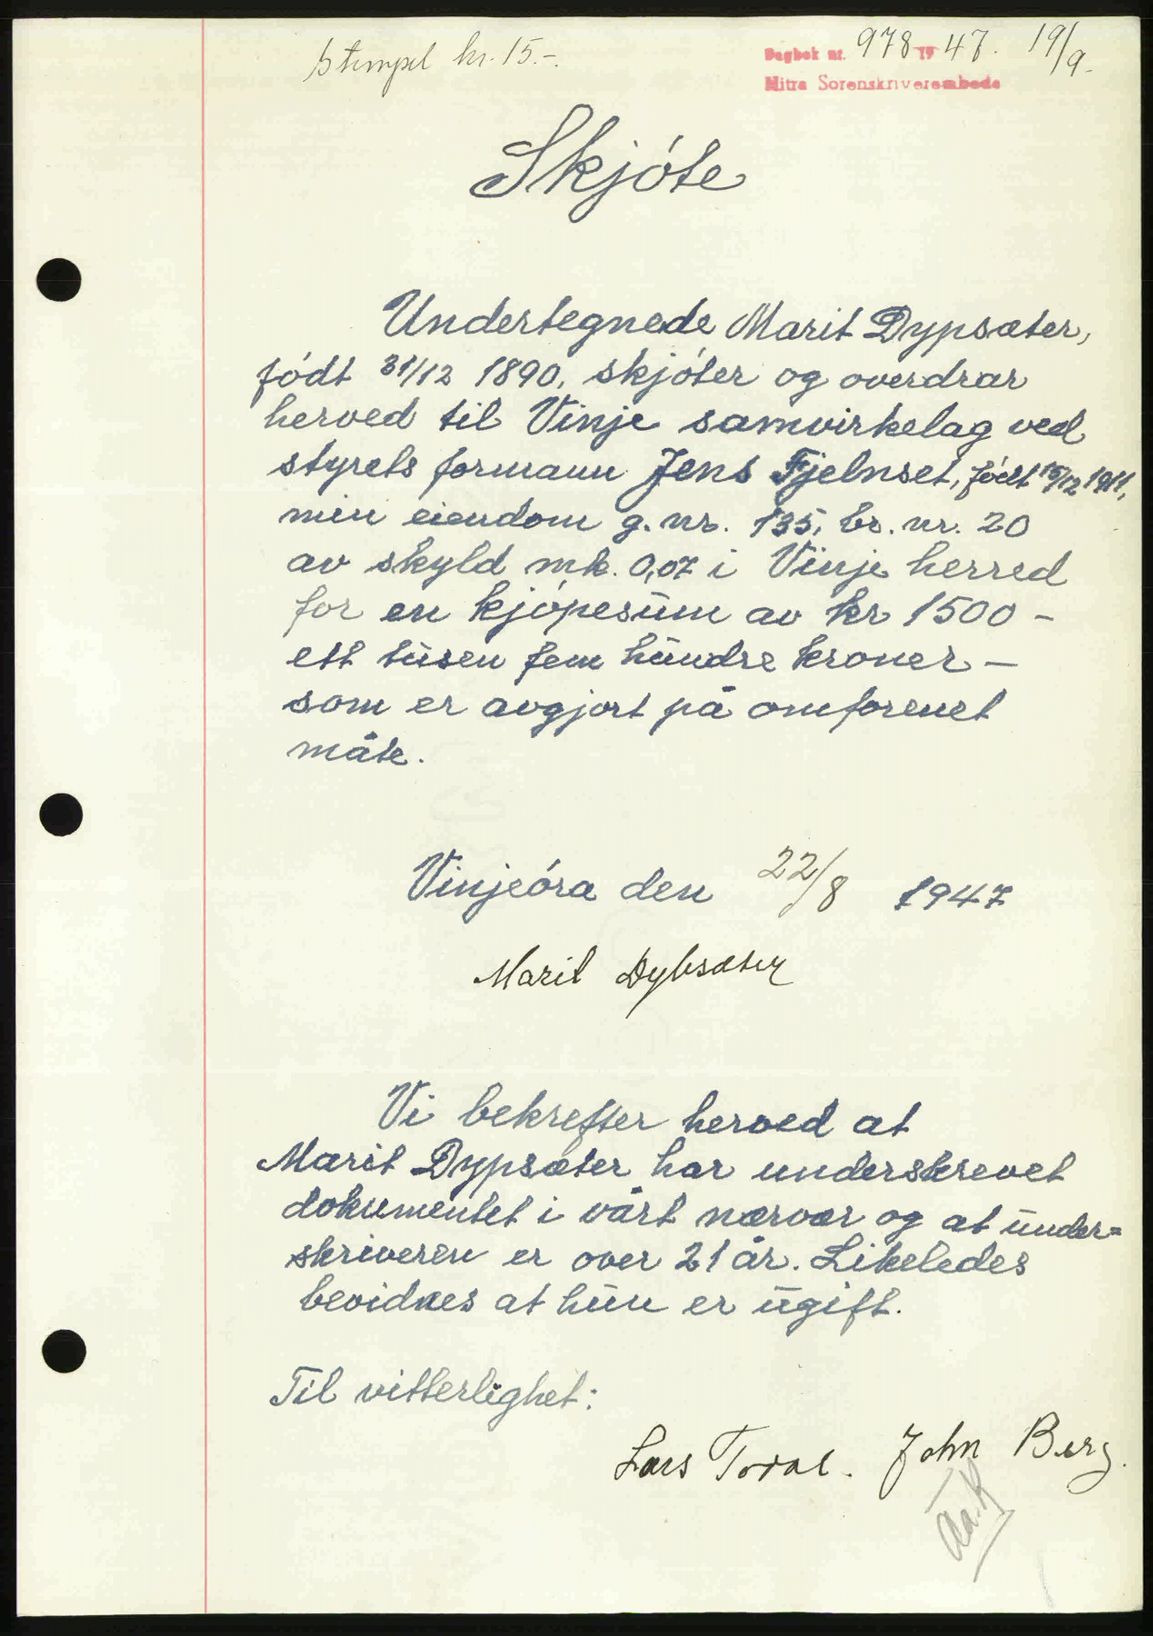 Stempel kr. 15.-.
Dagbok nr. 978 19 47. 19/9.
Nitra Sorenskriverembede
Skjóte
Undertegnede, Marit Dypsæter,
fódt 31/12 1890, skjóter og overdrar
herved til Vinje samvirkelag ved
styrets formann Jens Fjelnset, fódt 15/12 1911,
min eiendom g. nr. 135, br. nr. 20
av skyld mk. 0,07 i Vinje herred
for en kjópesum av kr 1500 -
ett tusen fem hundre kroner -
som er avgjort på omforenet
måte.
Vinjeóra den 22/8 1947
Marit Dybsæter
Vi bekrefter herved at
Marit Dypsæter har underskrevet
dokumentet i vårt nærvær og at under=
skriveren er over 21 år. Likeledes
bevidnes at hun er ugift.
Til vitterlighet:
Lars . John Berg.
Aa.K